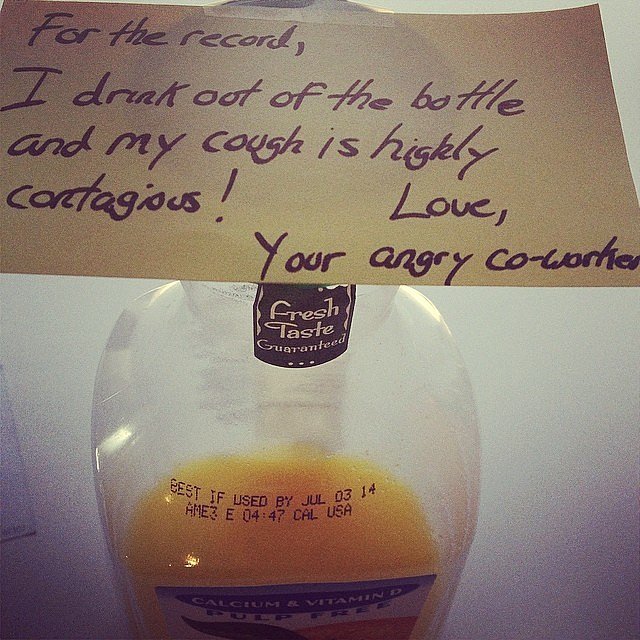 For the record,
I drink out of the bottle
and my cough is highly
contagious!
Love,
Your angry co-worker
Fresh
Taste
Guaranteed
BEST IF USED BY JUL 03 14
AME3 E 04:47 CAL USA
CALCIUM & VITAMIN D
PULP FREE